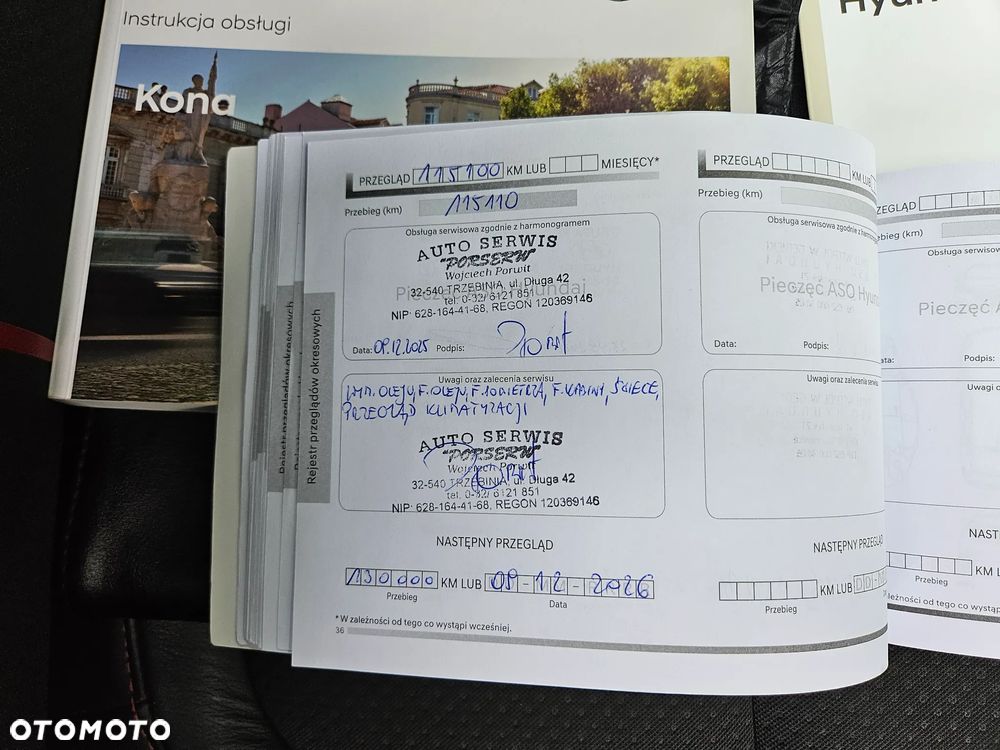 Instrukcja obsługi
Kona
PRZEGLĄD 115100 KM LUB MIESIĘCY*
Przebieg (km) 115110
Obsługa serwisowa zgodnie z harmonogramem
AUTO SERWIS
"PORSERW"
Wojciech Porwit
32-540 TRZEBINIA, ul. Długa 42
tel. 0-32/ 6121 851
NIP: 628-164-41-68, REGON 120369146
Data: 09.12.2025 Podpis:
Uwagi oraz zalecenia serwisu
WYM. OLEJU, F. OLEJU, F. POWIETRZA, F. KABINY, ŚWIECE,
PRZEGLĄD KLIMATYZACJI
AUTO SERWIS
"PORSERW"
Wojciech Porwit
32-540 TRZEBINIA, ul. Długa 42
tel. 0-32/ 6121 851
NIP: 628-164-41-68, REGON 120369146
NASTĘPNY PRZEGLĄD
130000 KM LUB 09-12-2026
Przebieg Data
* W zależności od tego co wystąpi wcześniej.
36
Rejestr przeglądów okresowych
Rejestr przeglądów okresowych
PRZEGLĄD KM LUB
Przebieg (km)
Obsługa serwisowa zgodnie z
Pieczęć ASO
Data: Podpis:
Uwagi oraz zalecenia serwisu
NASTĘPNY PRZEGLĄD
KM LUB
Przebieg
Przebieg
KM LUB
Pieczęć
Podpis:
Uwagi
OTOMOTO